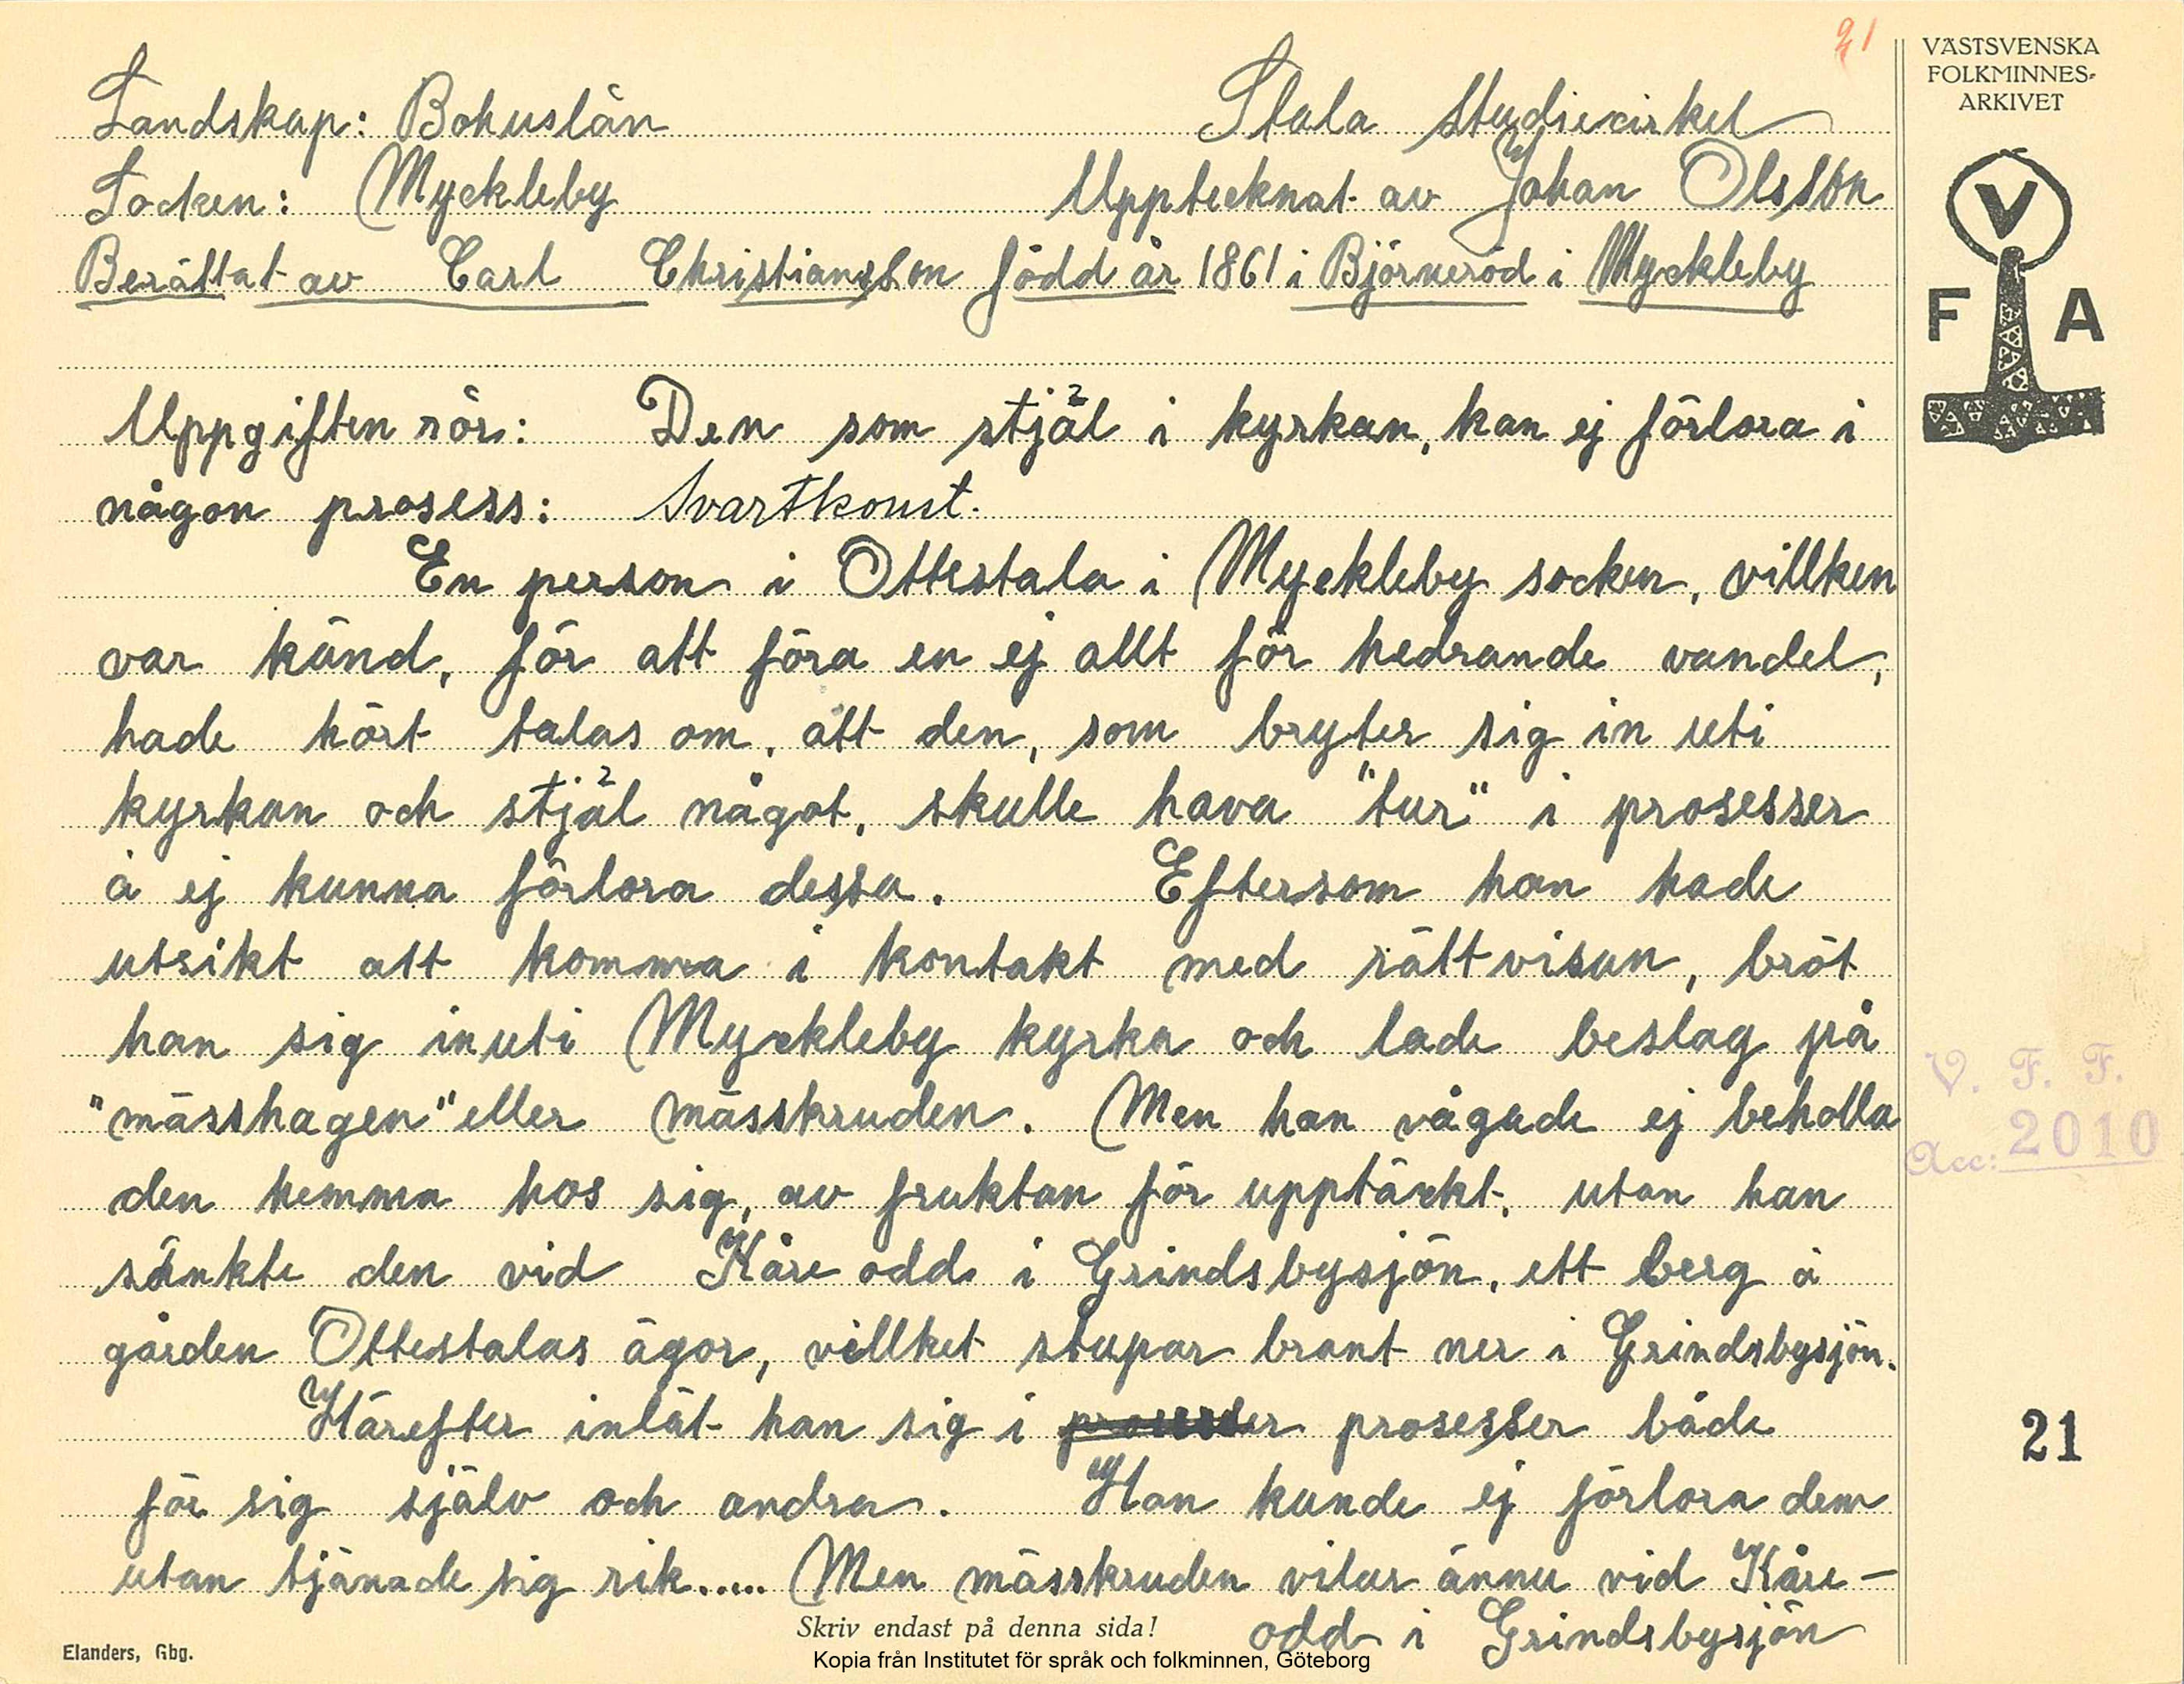 21
VÄSTSVENSKA
FOLKMINNES-
ARKIVET
V
F A
Landskap: Bohuslän Stala Studiecirkel
Socken: Myckleby Upptecknat av Johan Olsson
Berättat av Carl Christiansson född år 1861 i Björneröd i Myckleby
Uppgiften rör: Den som stjäl i kyrkan, kan ej förlora i
någon prosess: Svartkonst.
En person i Ottestala i Myckleby socken, villken
var känd, för att föra en ej allt för hedrande vandel,
hade hört talas om, att den, som bryter sig in uti
kyrkan och stjäl något, skulle hava "tur" i prosesser
å ej kunna förlora dessa. Eftersom han hade
utsikt att komma i kontakt med rättvisan, bröt
han sig inuti Myckleby kyrka och lade beslag på
"mässhagen" eller mässkruden. Men han vågade ej behålla
den hemma hos sig, av fruktan för upptäckt, utan han
sänkte den vid Kåre odd i Grindsbysjön, ett berg å
gården Ottestalas ägor, villket stupar brant ner i Grindsbysjön.
Härefter inlät han sig i prosesser både
för sig själv och andra. Han kunde ej förlora dem
utan tjänade sig rik..... Men mässkruden vilar ännu vid Kåre-
odd i Grindsbysjön
V. F. F.
Acc: 2010
21
Skriv endast på denna sida!
Elanders, Gbg.
Kopia från Institutet för språk och folkminnen, Göteborg